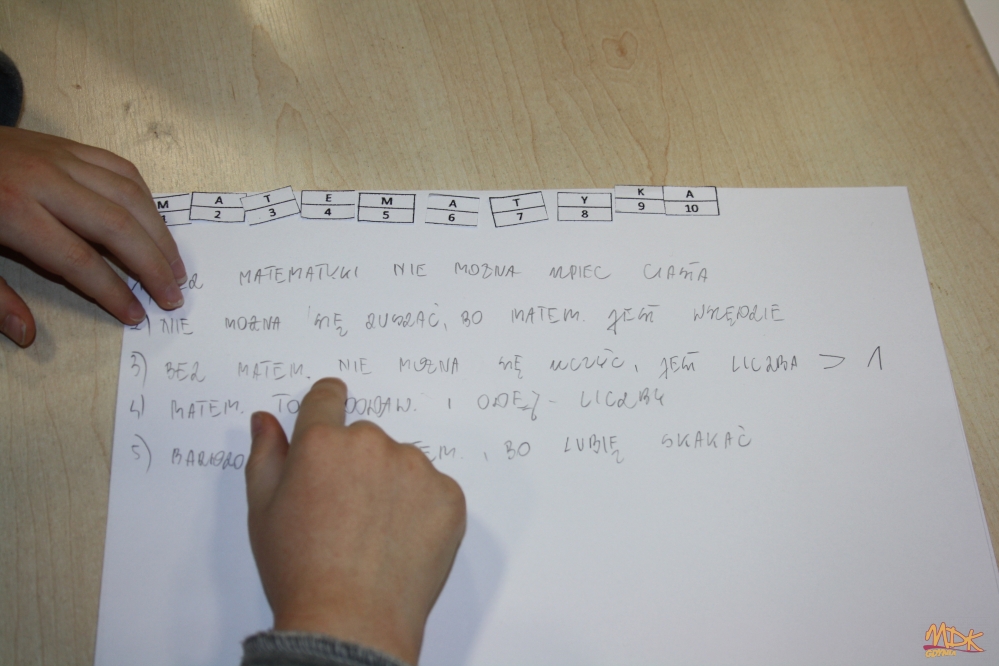 M A T E M A T Y K A
1 2 3 4 5 6 7 8 9 10
MATEMATYKI NIE MOŻNA UPIEC CIASTA
2) NIE MOŻNA SIĘ RUSZAĆ, BO MATEM. JEST WSZĘDZIE
3) BEZ MATEM. NIE MOŻNA SIĘ UCZYĆ, JEST LICZBA > 1
4) MATEM. TO DODAW. I ODEJ- LICZBY
5) BARDZO BO LUBIĘ SKAKAĆ
MDK